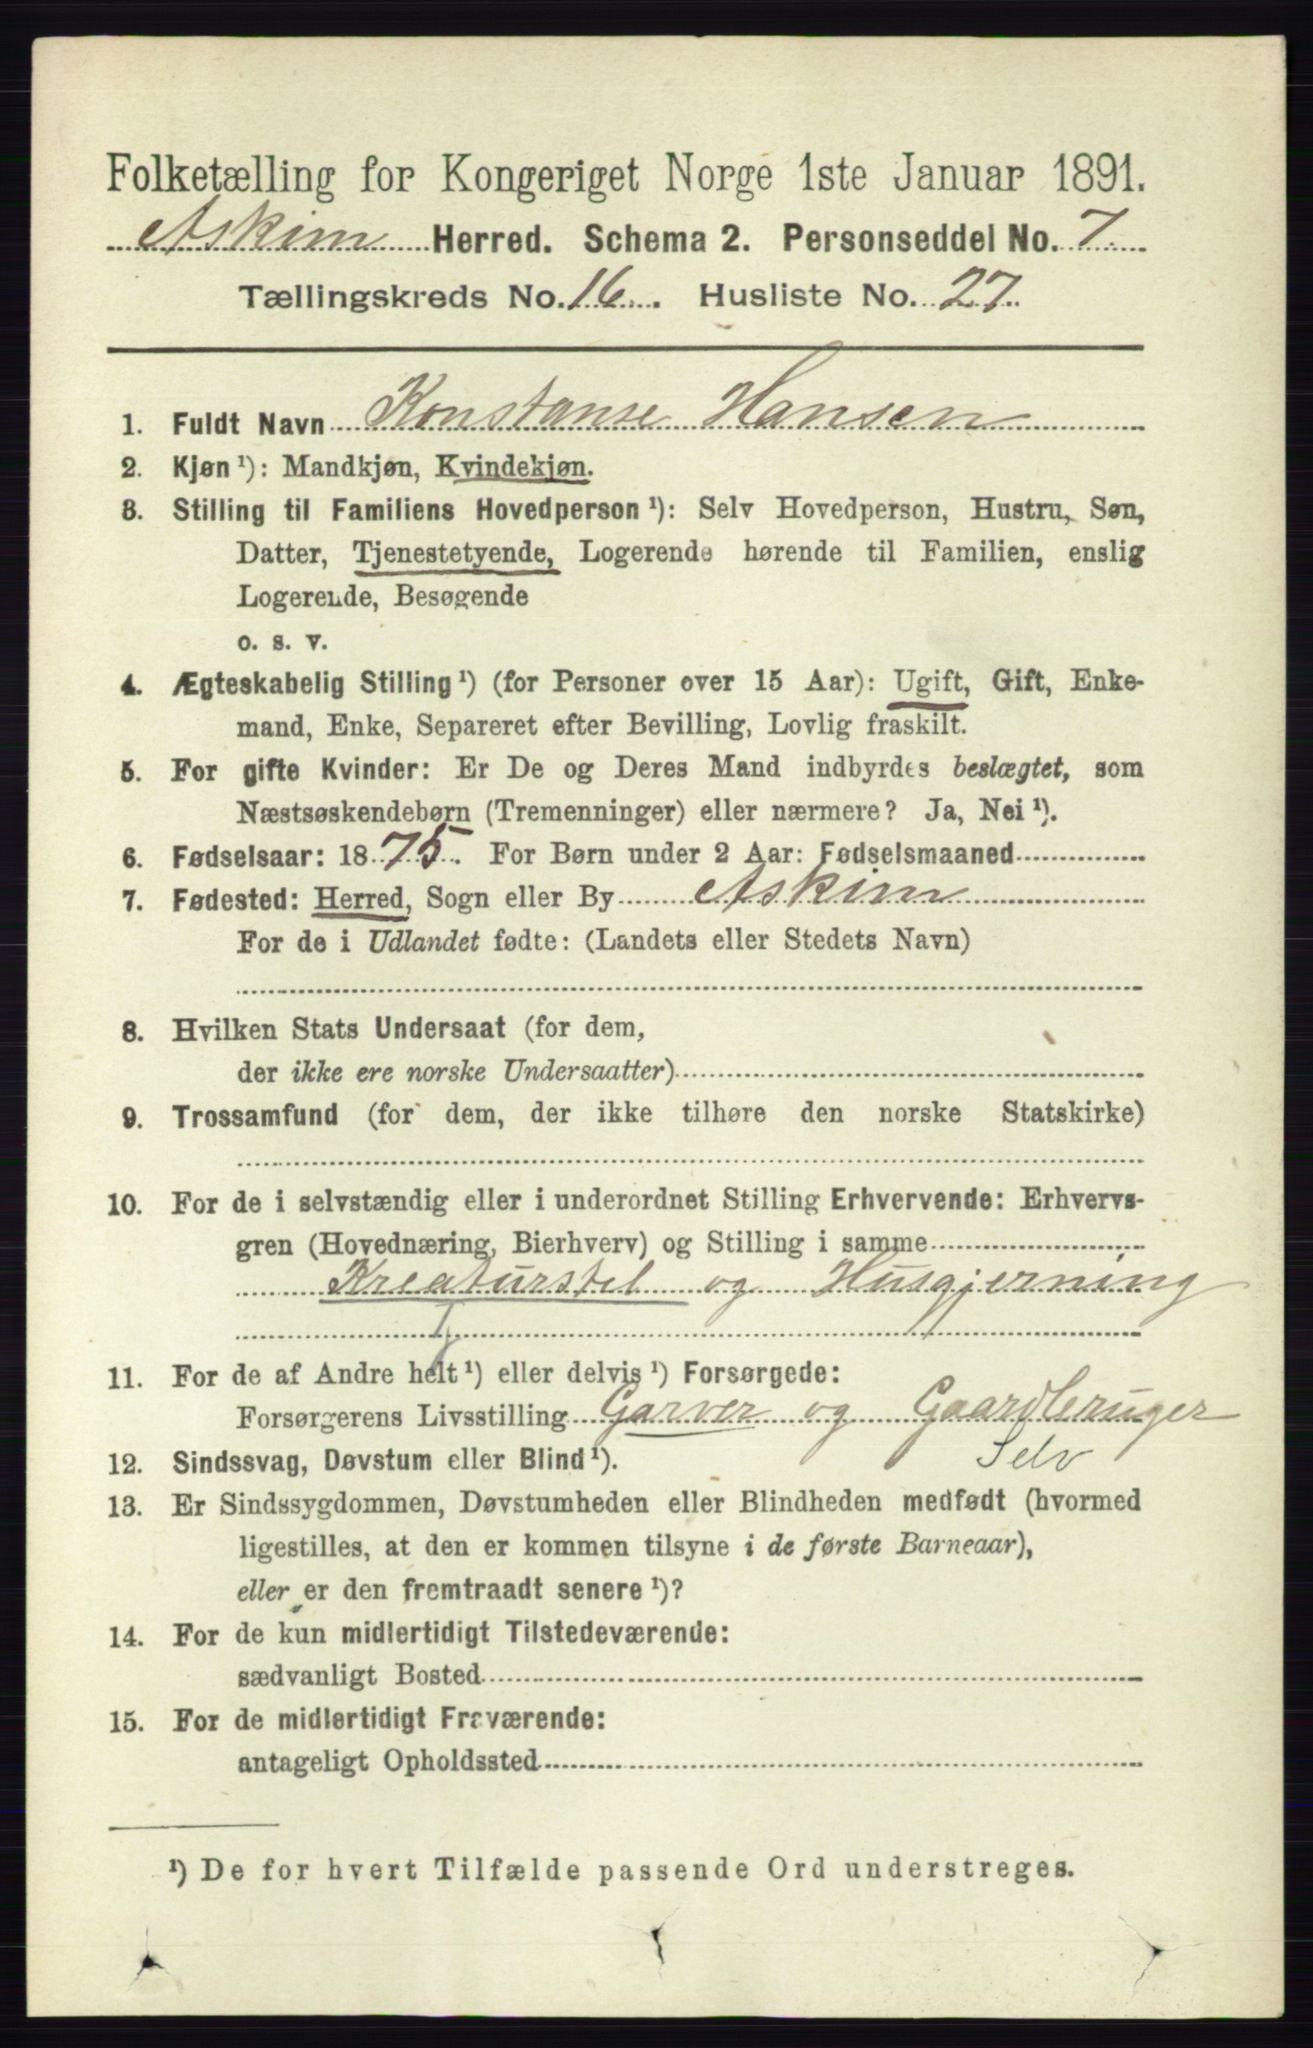 Folketælling for Kongeriget Norge 1ste Januar 1891.
Askim Herred. Schema 2. Personseddel No. 7.
Tællingskreds No. 16. Husliste No. 27
1. Fuldt Navn Konstanse Hansen
2. Kjøn ¹): Mandkjøn, Kvindekjøn.
3. Stilling til Familiens Hovedperson ¹): Selv Hovedperson, Hustru, Søn,
Datter, Tjenestetyende, Logerende hørende til Familien, enslig
Logerende, Besøgende
o. s. v.
4. Ægteskabelig Stilling ¹) (for Personer over 15 Aar): Ugift, Gift, Enke-
mand, Enke, Separeret efter Bevilling, Lovlig fraskilt.
5. For gifte Kvinder: Er De og Deres Mand indbyrdes beslægtet, som
Næstsøskendebørn (Tremenninger) eller nærmere? Ja, Nei ¹).
6. Fødselsaar: 1875. For Børn under 2 Aar: Fødselsmaaned
7. Fødested: Herred, Sogn eller By Askim
For de i Udlandet fødte: (Landets eller Stedets Navn)
8. Hvilken Stats Undersaat (for dem,
der ikke ere norske Undersaatter)
9. Trossamfund (for dem, der ikke tilhøre den norske Statskirke)
10. For de i selvstændig eller i underordnet Stilling Erhvervende: Erhvervs-
gren (Hovednæring, Bierhverv) og Stilling i samme
Kreaturstel og Husgjerning
11. For de af Andre helt ¹) eller delvis ¹) Forsørgede:
Forsørgerens Livsstilling Garver og Gaardbruger
12. Sindssvag, Døvstum eller Blind ¹). Selv
13. Er Sindssygdommen, Døvstumheden eller Blindheden medfødt (hvormed
ligestilles, at den er kommen tilsyne i de første Barneaar),
eller er den fremtraadt senere ¹)?
14. For de kun midlertidigt Tilstedeværende:
sædvanligt Bosted
15. For de midlertidigt Fraværende:
antageligt Opholdssted
¹) De for hvert Tilfælde passende Ord understreges.